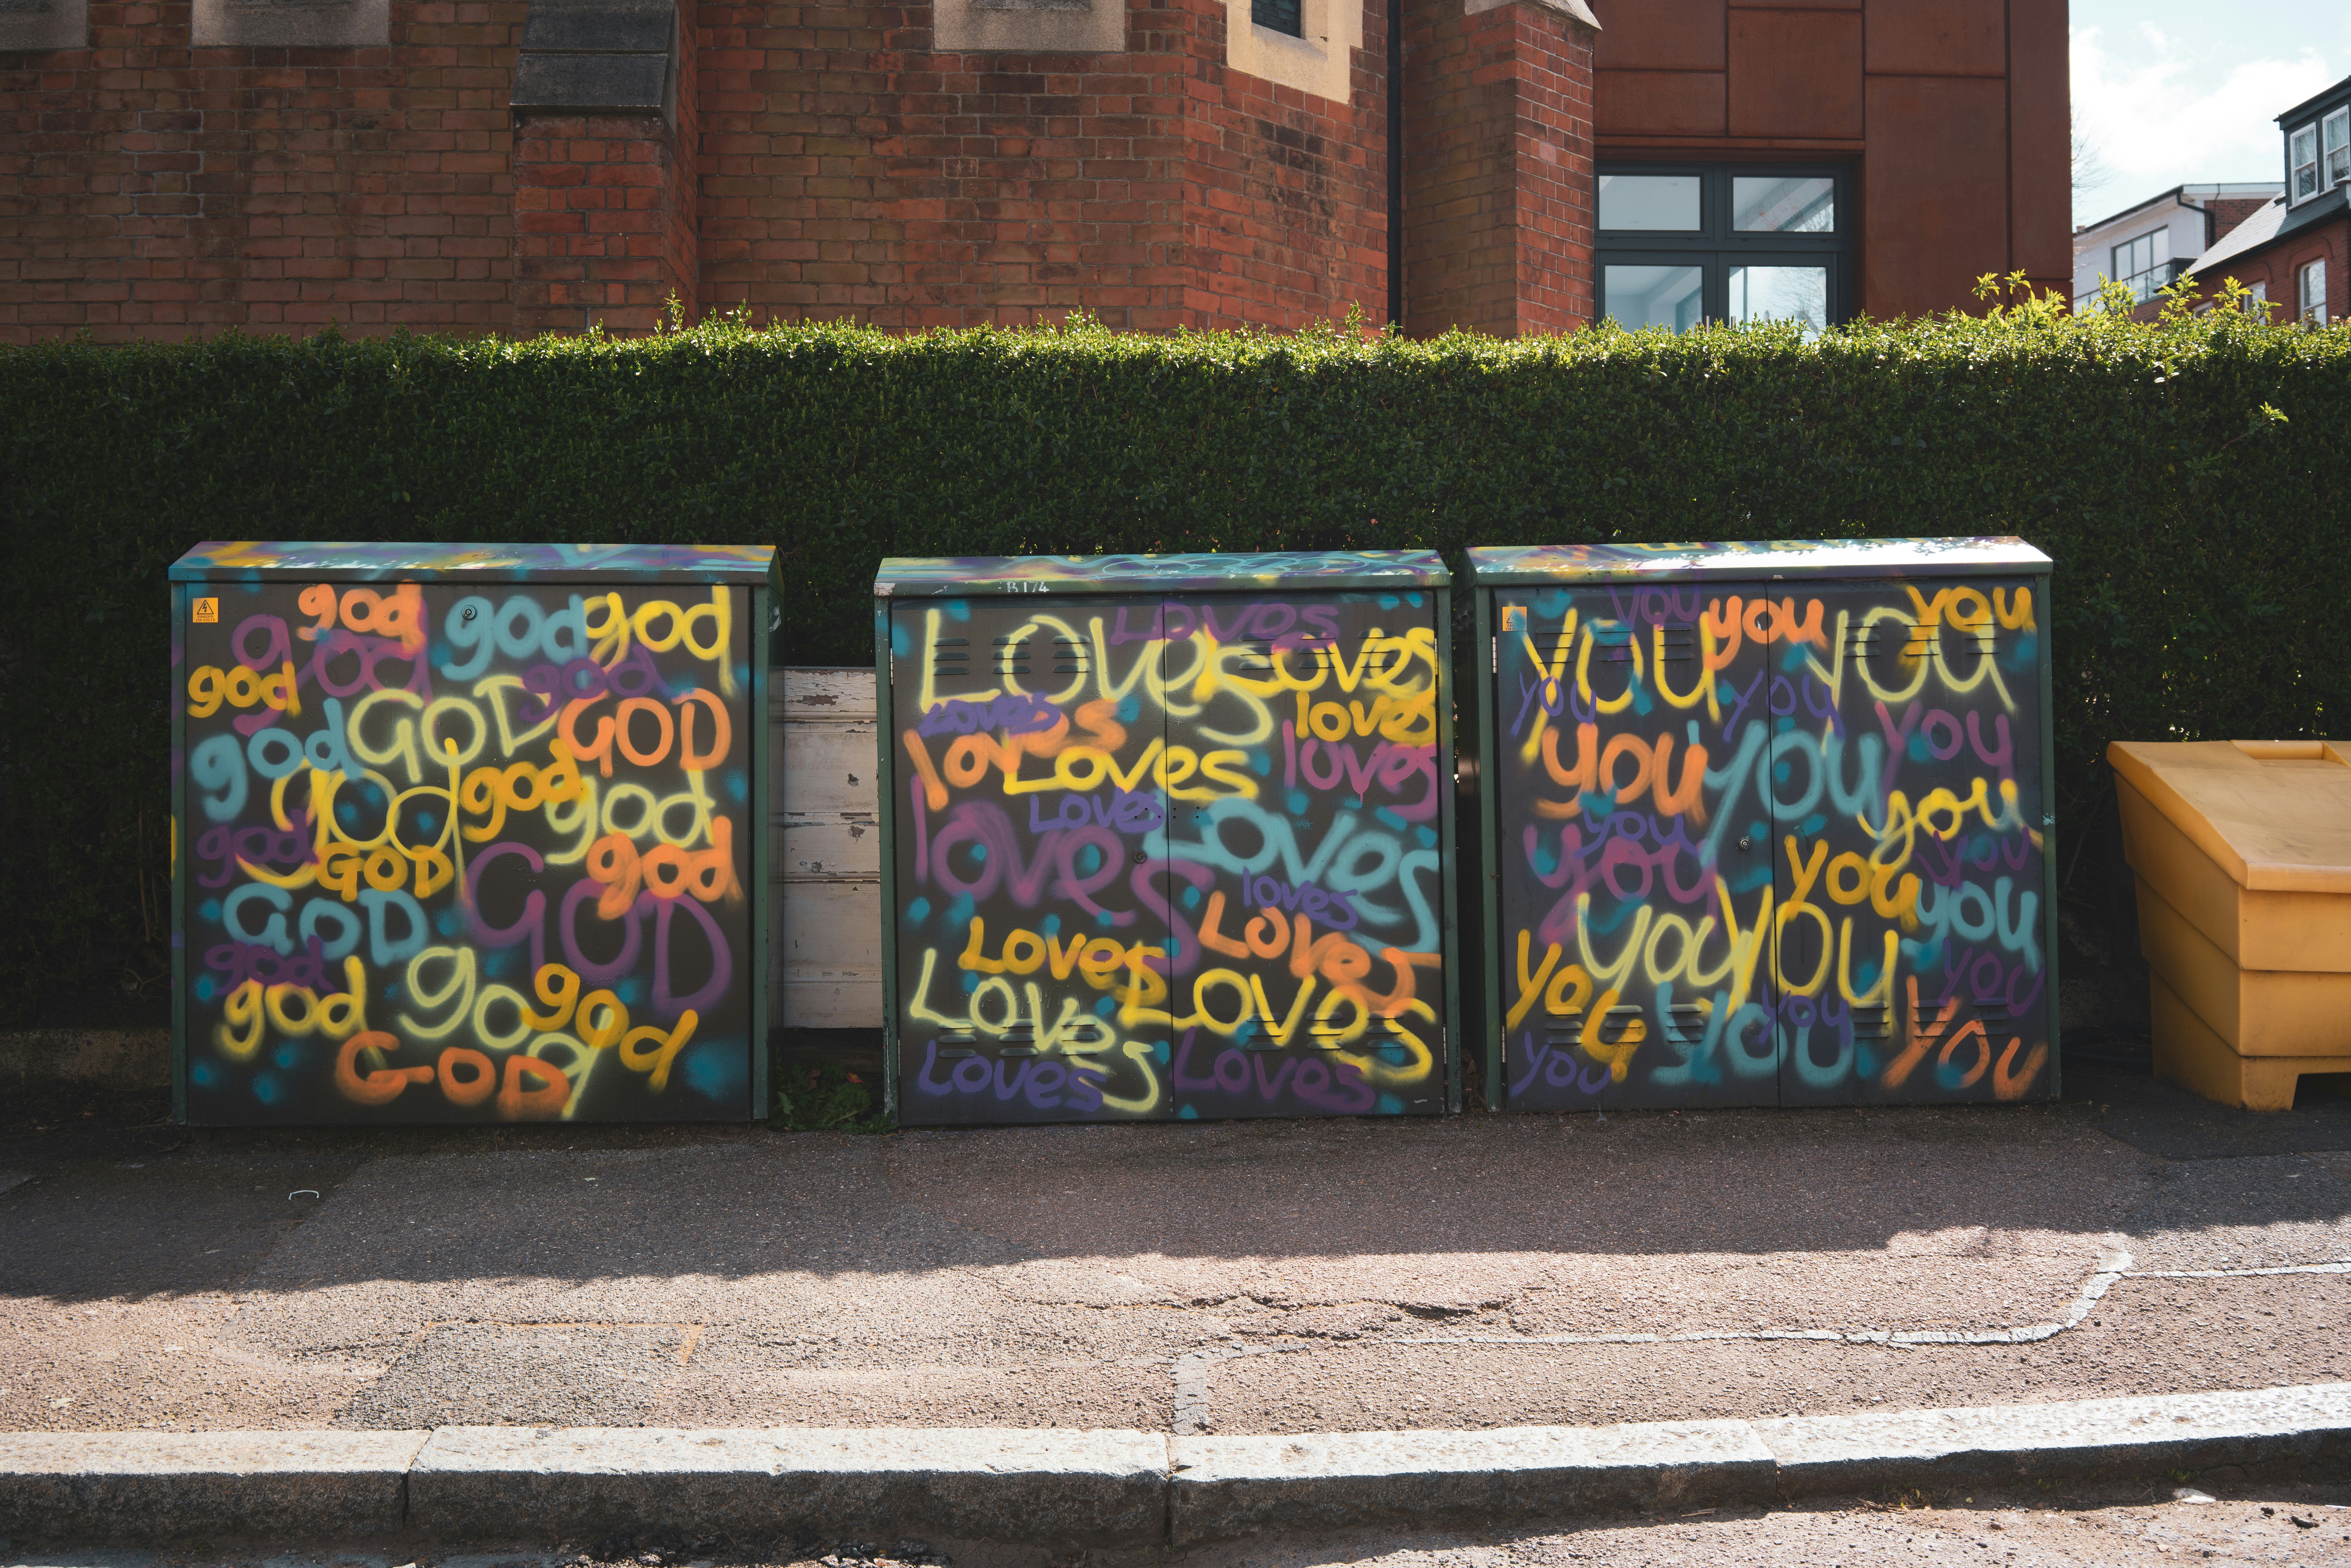 god god god
god god god
god GOD GOD
god god god god
god GOD god
GOD GOD
god god god god
GOD
B 174
Loves Loves
Loves
Loves loves
loves Loves loves
Loves
loves Loves
loves
Loves Loves
Loves Loves
Loves Loves
you you you
you you you you
you you you
you you
you you you
you you you
you you you
you you you
you you